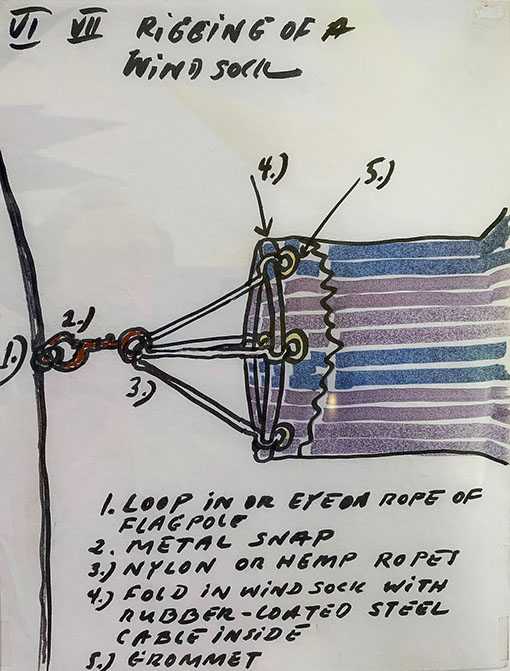 VI VII RIGGING OF A
WINDSOCK
4.)
5.)
2.)
1.)
3.)
1. LOOP IN OR EYE ON ROPE OF
FLAGPOLE
2. METAL SNAP
3.) NYLON OR HEMP ROPES
4.) FOLD IN WINDSOCK WITH
RUBBER-COATED STEEL
CABLE INSIDE
5.) GROMMET